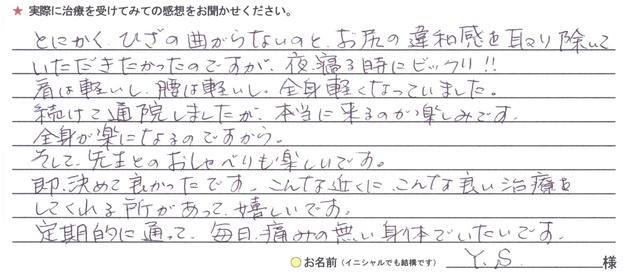 ★ 実際に治療を受けてみての感想をお聞かせください。
とにかく、ひざの曲がらないのと、お尻の違和感を取り除いて
いただきたかったのですが、夜、寝る時にビックリ!!
肩は軽いし、腰は軽いし、全身軽くなっていました。
続けて通院しましたが、本当に来るのが楽しみです。
全身が楽になるのですから。
そして、先生とのおしゃべりも楽しいです。
即、決めて良かったです。こんな近くに、こんな良い治療を
してくれる所があって、嬉しいです。
定期的に通って、毎日、痛みの無い身体でいたいです。
お名前（イニシャルでも結構です） Y.S. 様